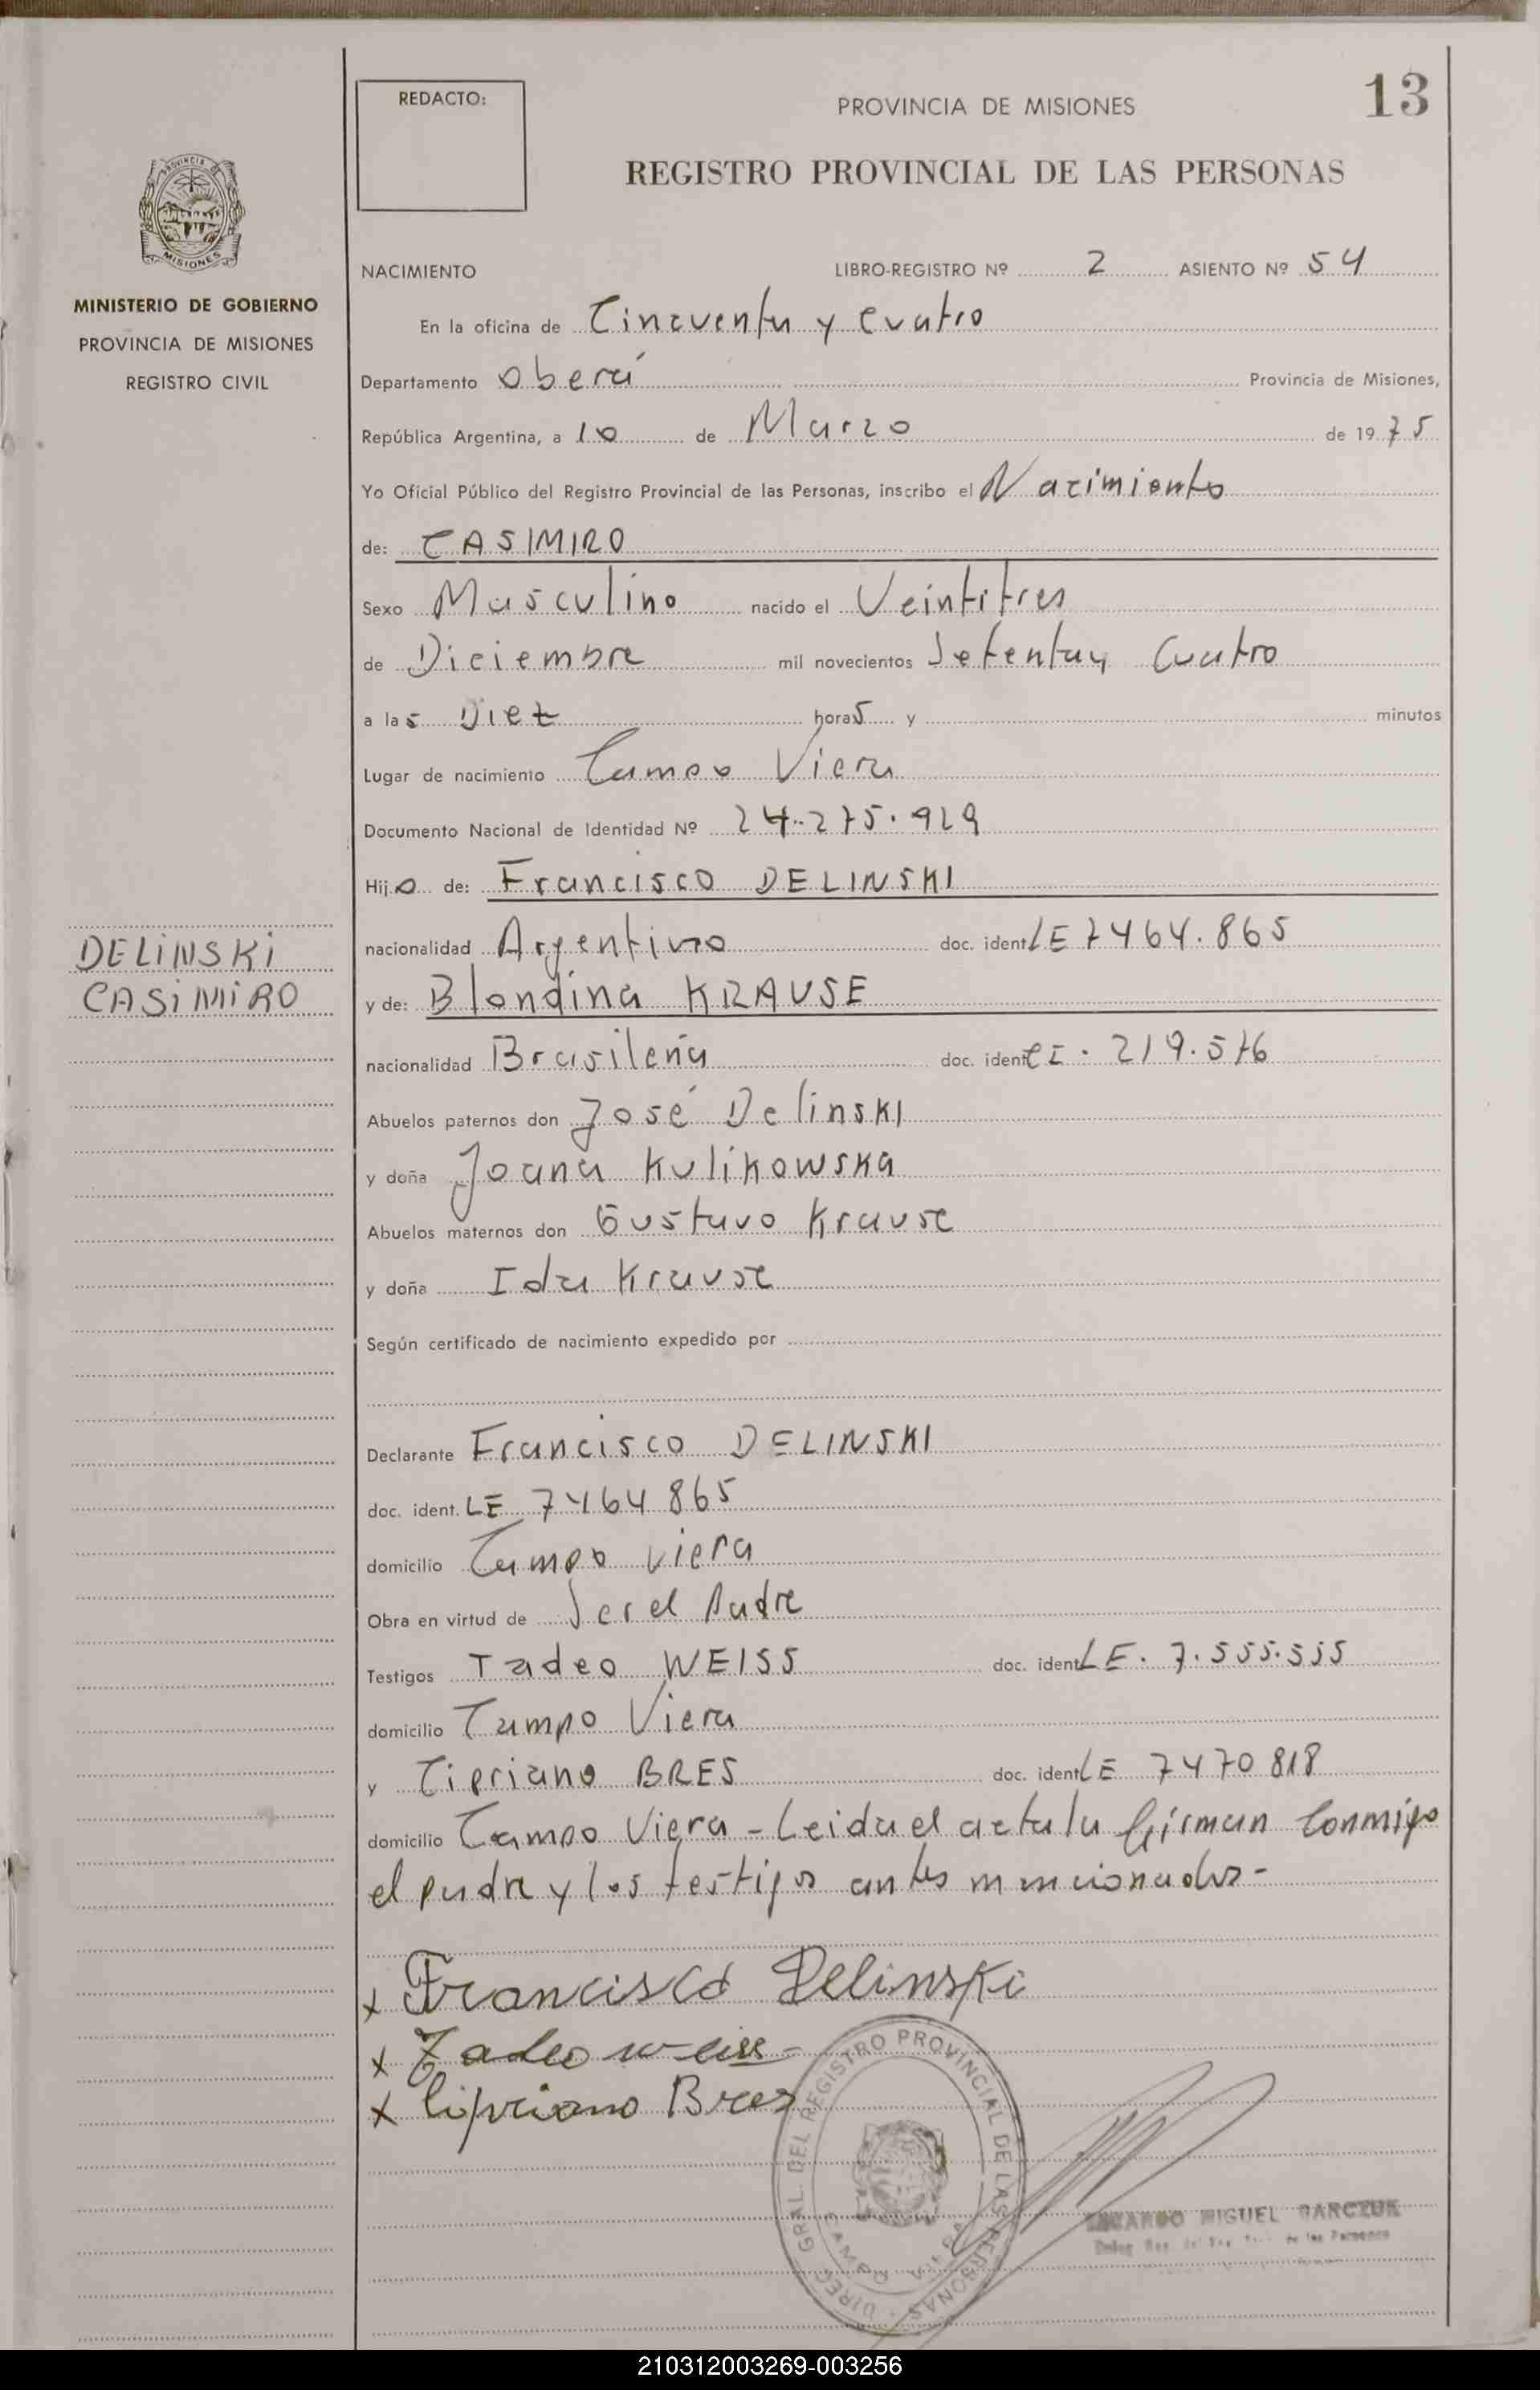 REDACTO:
PROVINCIA DE MISIONES
13
REGISTRO PROVINCIAL DE LAS PERSONAS
PROVINCIA DE
MISIONES
MINISTERIO DE GOBIERNO
PROVINCIA DE MISIONES
REGISTRO CIVIL
NACIMIENTO LIBRO-REGISTRO Nº 2 ASIENTO Nº 54
En la oficina de Cincuenta y cuatro
Departamento Oberá Provincia de Misiones,
República Argentina, a 10 de Marzo de 1975
Yo Oficial Público del Registro Provincial de las Personas, inscribo el Nacimiento
de: CASIMIRO
Sexo Masculino nacido el Veintitres
de Diciembre mil novecientos Setenta y Cuatro
a las Diez horas y minutos
Lugar de nacimiento Campo Viera
Documento Nacional de Identidad Nº 24.275.929
Hijo de: Francisco DELINSKI
nacionalidad Argentino doc. ident LE 7464.865
DELINSKI
CASIMIRO
y de: Blondina KRAUSE
nacionalidad Brasileña doc. ident CI. 219.576
Abuelos paternos don José Delinski
y doña Joana Kulikowska
Abuelos maternos don Gustavo Krause
y doña Ida Krause
Según certificado de nacimiento expedido por
Declarante Francisco DELINSKI
doc. ident. LE 7464865
domicilio Campo Viera
Obra en virtud de Ser el Padre
Testigos Tadeo WEISS doc. ident LE. 7.555.555
domicilio Campo Viera
y Cipriano BRES doc. ident LE 7470818
domicilio Campo Viera - Leida el acta la firman conmigo
el padre y los testigos antes mencionados-
x Francisco Delinski
x Tadeo weiss-
x Cipriano Bres
DIREC. GRAL. DEL REGISTRO PROVINCIAL DE LAS PERSONAS
CAMPO VIERA
MIGUEL
de las Personas
210312003269-003256